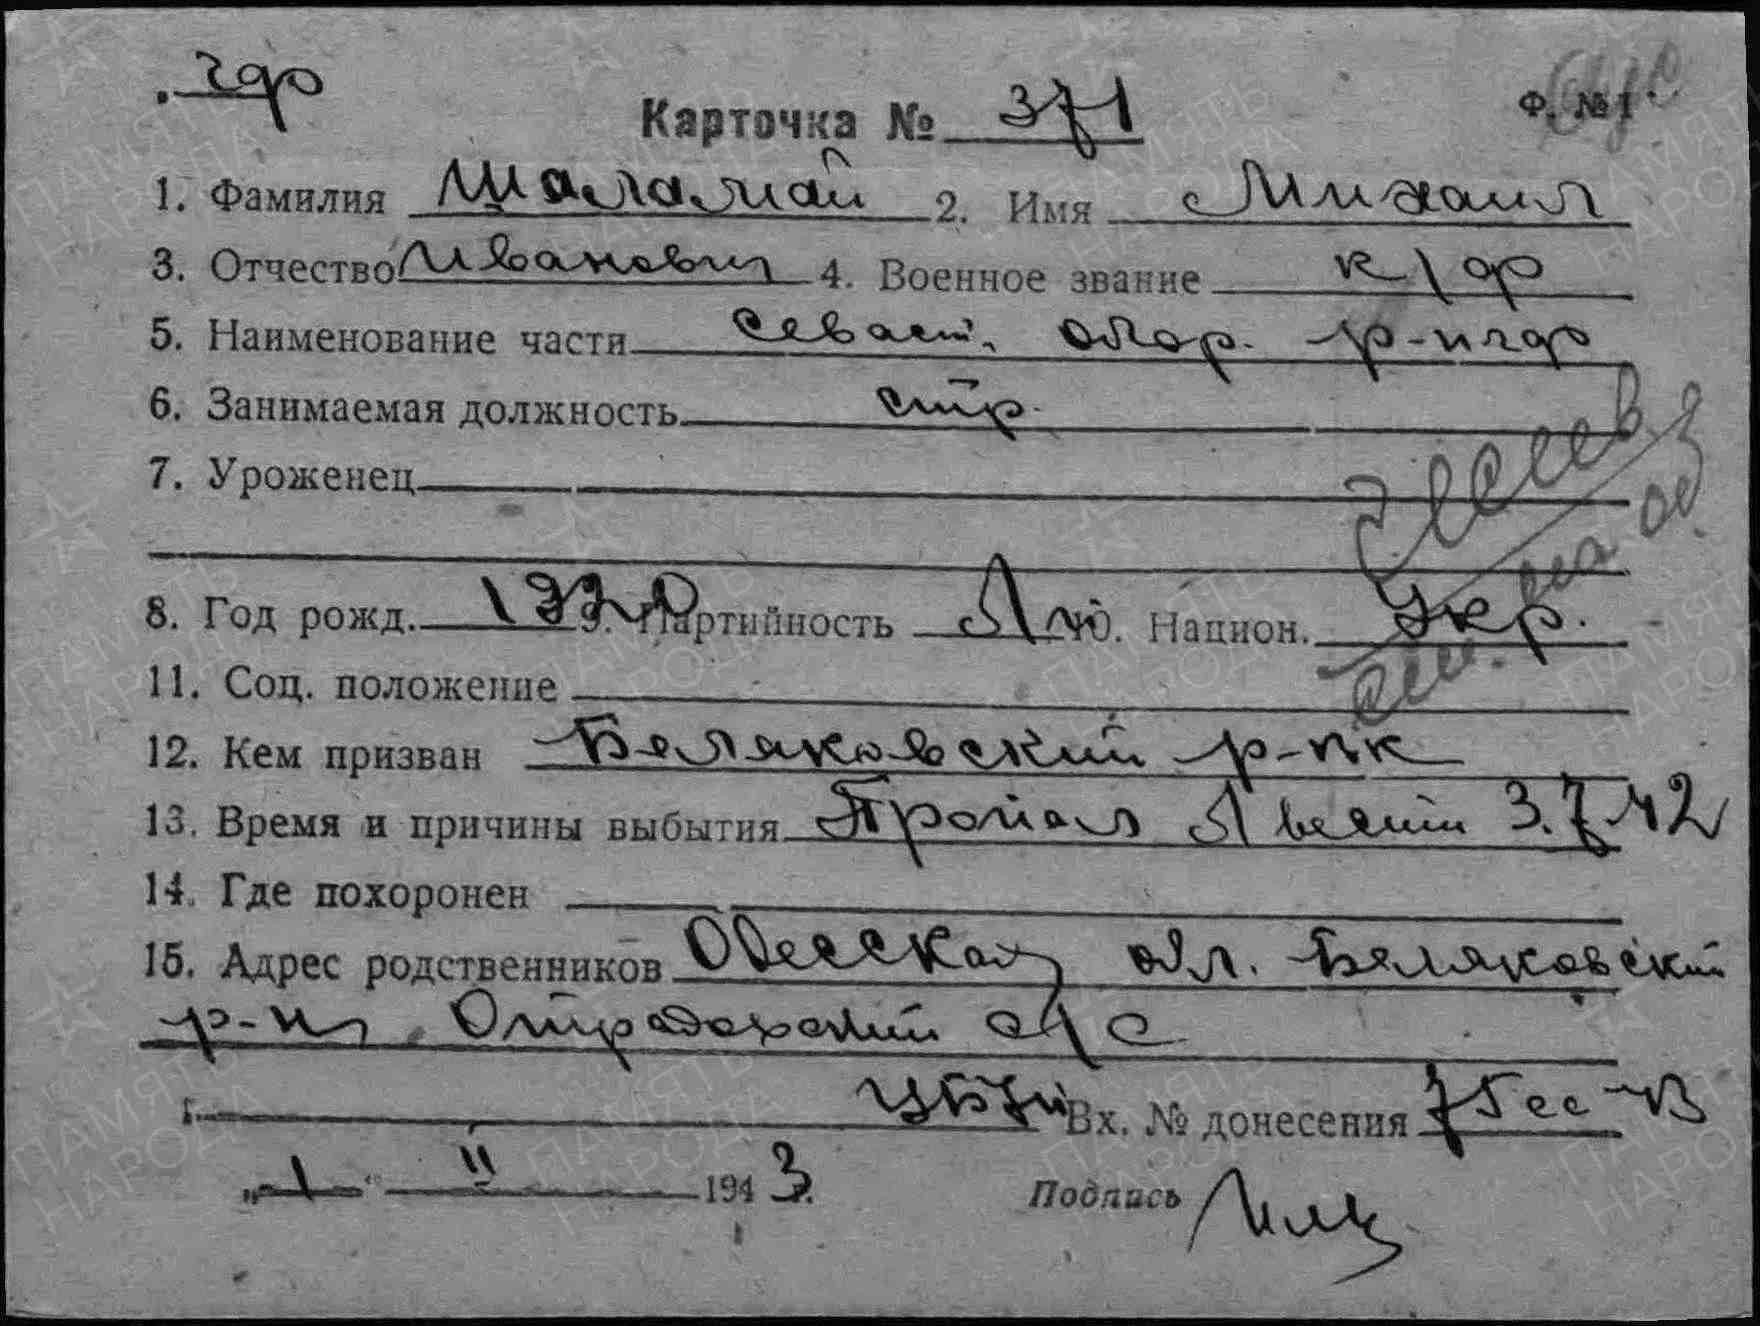 Карточка № 371 Ф. № 1
1. Фамилия Шаламай 2. Имя Михаил
3. Отчество Иванович 4. Военное звание к/ф
5. Наименование части Севаст. обор. р-н чф
6. Занимаемая должность стр.
7. Уроженец
8. Год рожд. 9. Партийность 10. Национ. Укр.
11. Соц. положение
12. Кем призван Беляковский р-вк
13. Время и причины выбытия Пропал вести 3.7.42
14. Где похоронен
15. Адрес родственников Одесская обл. Беляковский
р-н, Отрадовский с/с
г. Вх. № донесения 75сс-43
„1“ II 1943.
Подпись
ПАМЯТЬ НАРОДА